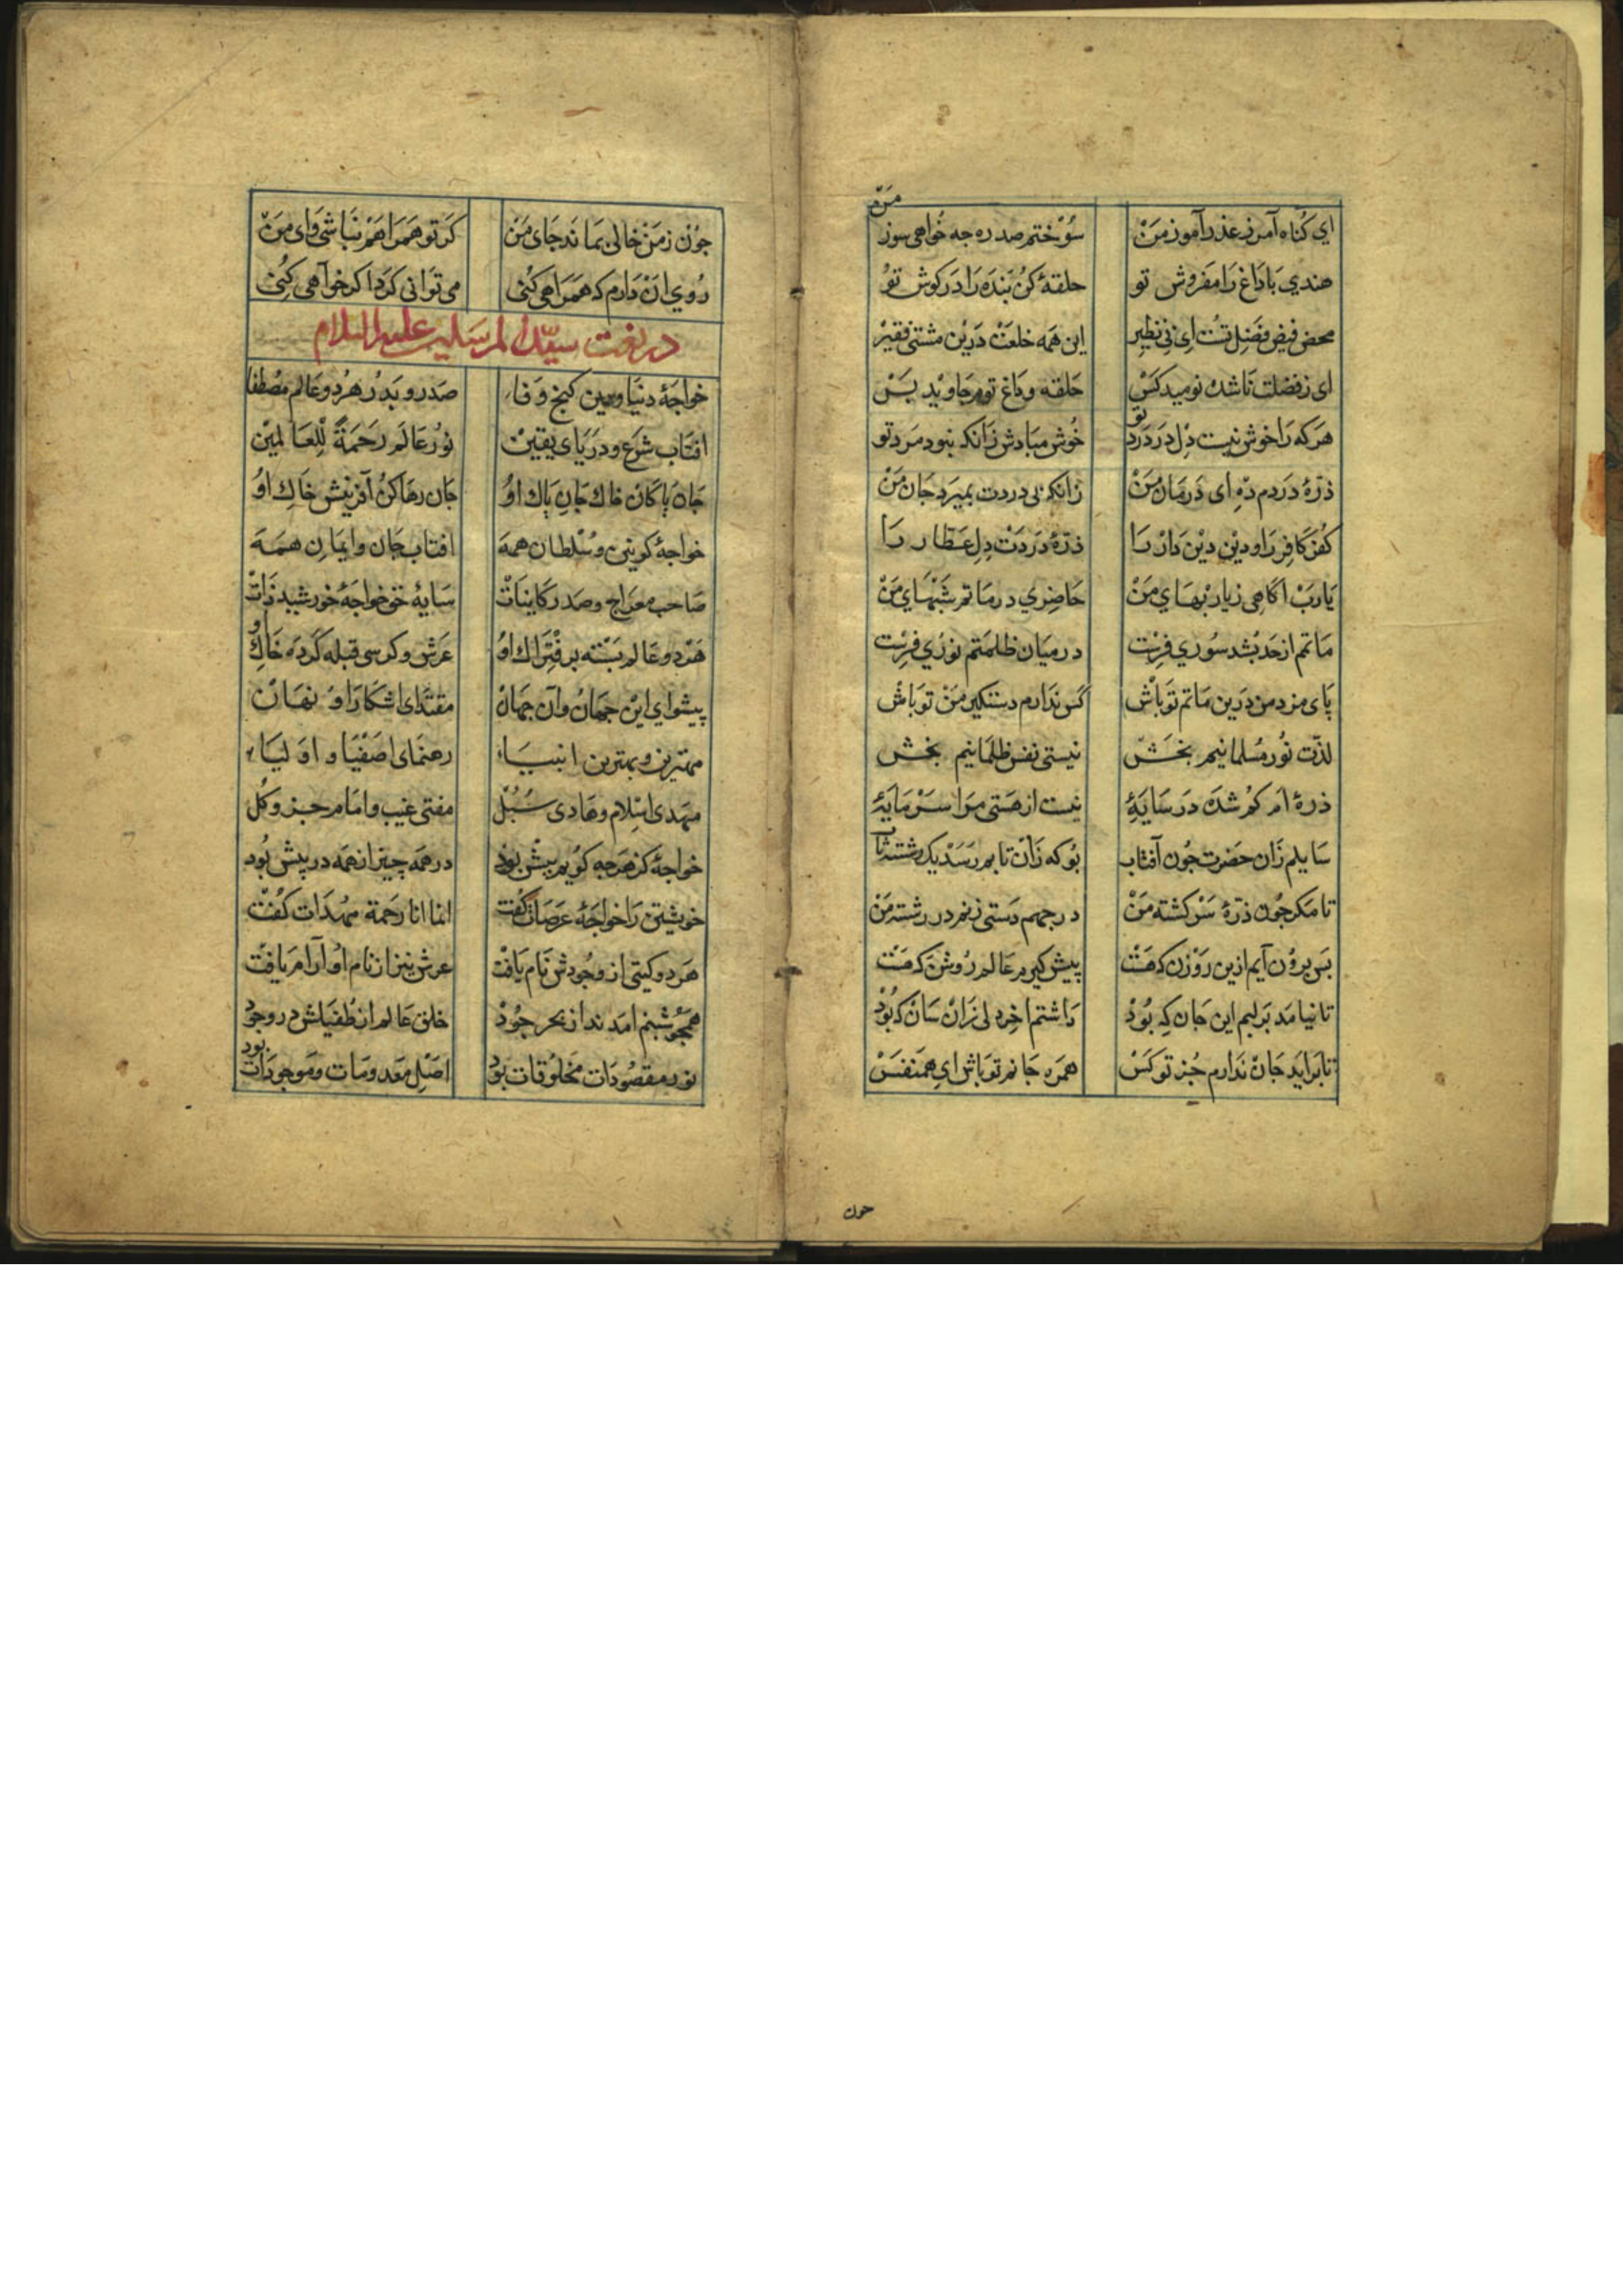 ای کناه آمرز عذرآموز من سوختم صد ره چه خواهی سوز من
هندی با داغ را مفروش تو حلقهٔ کن بنده را در کوش تو
محض فیض فضل تست ای بی نظیر این همه خلعت درین مشتی فقیر
ای ز فضلت ناشده نومید کس حلقه و داغ توم جاوید بس
هر که را خوش نیست دل در درد تو خوش مبادش زانکه نبود مرد تو
ذرّهٔ دردم ده ای درمان من زانکه بی دردت بمیرد جان من
کفر کافر را و دین دین دار را ذرّهٔ دردت دل عطار را
یارب آکاهی ز یاربهای من حاضری در ماتم شبهای من
ماتم از حد بشد سوری فرست در میان ظلمتم نوری فرست
پای مزد من درین ماتم تو باش کس ندارم دستکیر من تو باش
لذّت نور مسلمانیم بخش نیستی نفس ظلمانیم بخش
ذرهٔ ام کم شده در سایهٔ نیست از هستی مرا سرمایهٔ
سایلم زان حضرت چون آفتاب بو که زان تابم رسد یک رشته تاب
تا مکر چون ذرّهٔ سرکشته من درجهم دستی زنم در رشته من
بس برون آیم ازین روزن که هست پیش کیرم عالم روشن که هست
تا نیامد بر لبم این جان که بود داشتم اخر دلی زان سان که بود
تا براید جان ندارم جز تو کس همره جانم تو باش ای هم نفس
چون
چون ز من خالی بماند جای من کر تو همراهم نباشی وای من
روی ان دارم که همراهی کنی می توانی کرد اکر خواهی کنی
در نعت سیّد المرسلین علیه السلام
خواجهٔ دنیا و دین کنج وفا صدر و بدر هر دو عالم مصطفا
افتاب شرع و دریای یقین نور عالم رحمةً للعالمین
جان پاکان خاک جان پاک او جان رها کن آفرینش خاک او
خواجهٔ کونین و سلطان همه افتاب جان و ایمان همه
صاحب معراج و صدر کاینات سایهٔ حق خواجهٔ خورشید ذات
هر دو عالم بسته بر فتراک او عرش و کرسی قبله کرده خاک او
پیشوای این جهان و آن جهان مقتدای اشکارا و نهان
مهترین و بهترین انبیاء رهنمای اصفیا و اولیاء
مهدی اسلام و هادی سبل مفتی غیب و امام جزو و کل
خواجهٔ کز هر چه کویم بیش بود در همه چیز از همه در پیش بود
خویشتن را خواجهٔ عرصات کفت انما انا رحمة مهدات کفت
هر دو کیتی از وجودش نام یافت عرش نیز از نام او آرام یافت
همچو شبنم امدند از بحر جود خلق عالم از طفیلش در وجود
نور مقصودات مخلوقات بود اصل معدومات و موجودات بود